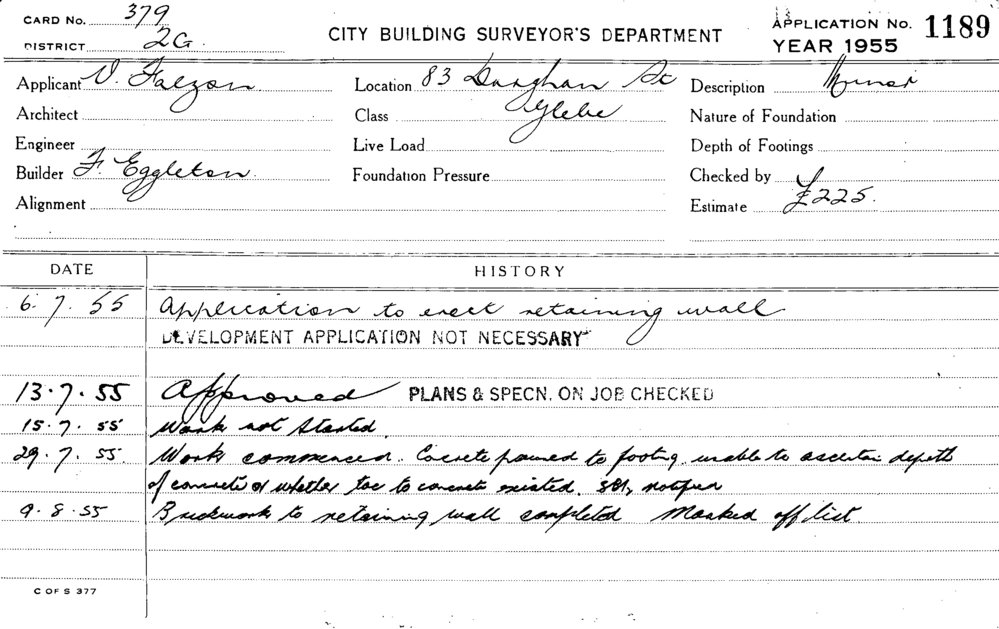 CARD No. 379
DISTRICT 2G.
CITY BUILDING SURVEYOR'S DEPARTMENT
APPLICATION No. 1189
YEAR 1955
Applicant V. Falzon
Location 83 Darghan St
Description Minor
Architect
Class Glebe
Nature of Foundation
Engineer
Live Load
Depth of Footings
Builder F. Eggleton
Foundation Pressure
Checked by
Alignment
Estimate £225.
DATE HISTORY
6.7.55 Application to erect retaining wall
DEVELOPMENT APPLICATION NOT NECESSARY
13.7.55 Approved PLANS & SPECN. ON JOB CHECKED
15.7.55 Work not started
29.7.55. Work commenced. Cocrete poured to footing unable to ascertain depth
of concrete or whether toe to concrete existed. notified
9.8.55 Brickwork to retaining wall completed Marked off list.
C OF S 377